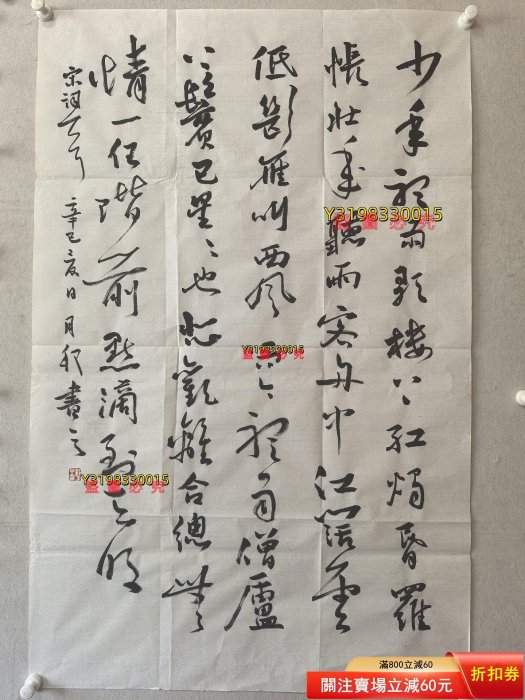 少年聽雨歌樓上紅燭昏羅
帳壯年聽雨客舟中江闊雲
低斷雁叫西風而今聽雨僧廬
下鬢已星々也悲歡離合總無
情一任階前點滴到天明
宋詞一首 辛巳夏日 月書之
Y3198330015
盜圖必究
Y3198330015
盜圖必究
Y3198330015
盜圖必究
滿800立減60
關注賣場立減60元
折扣券